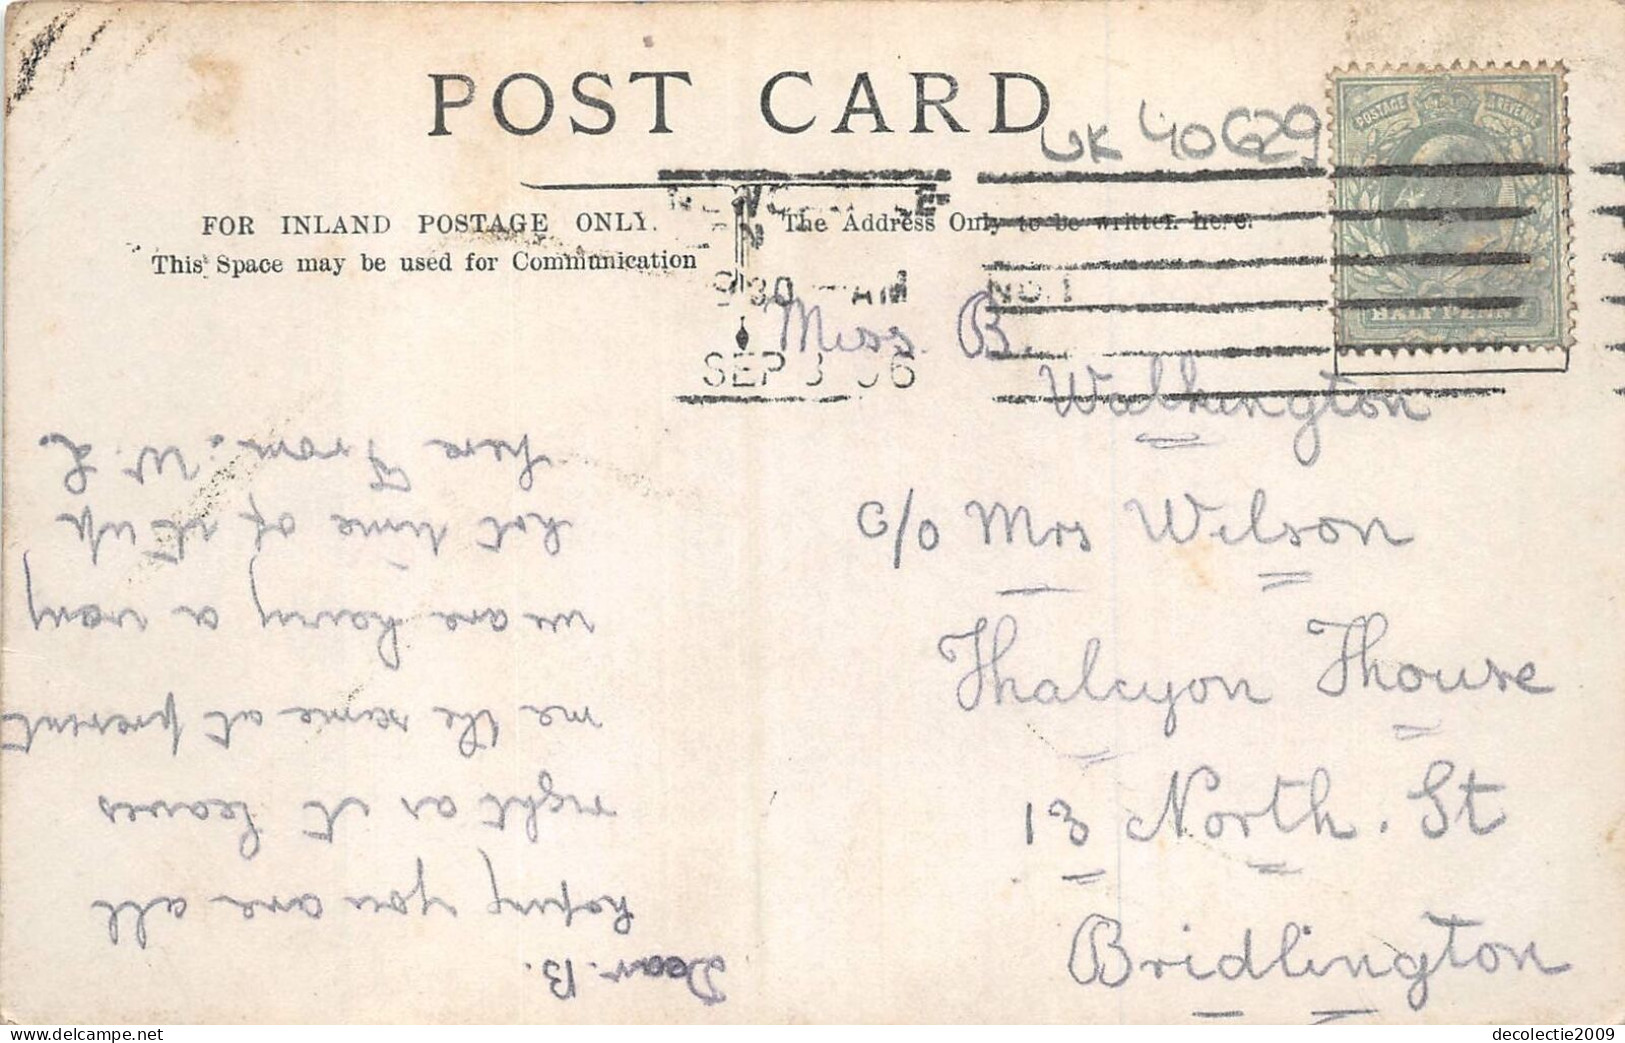 POST CARD
UK 40629
FOR INLAND POSTAGE ONLY.
This Space may be used for Communication
The Address Only to be written here.
POSTAGE & REVENUE
HALFPENNY
9 30 AM
NO. 1
SEP 3 06
Miss. B.
Walkington
c/o Mrs Wilson
Halcyon House
13 North. St
Bridlington
Dear. B.
hoping you are all
right as it leaves
me the same at present
we are having a vary
hot time of it up
here From. W L.
decolectie2009